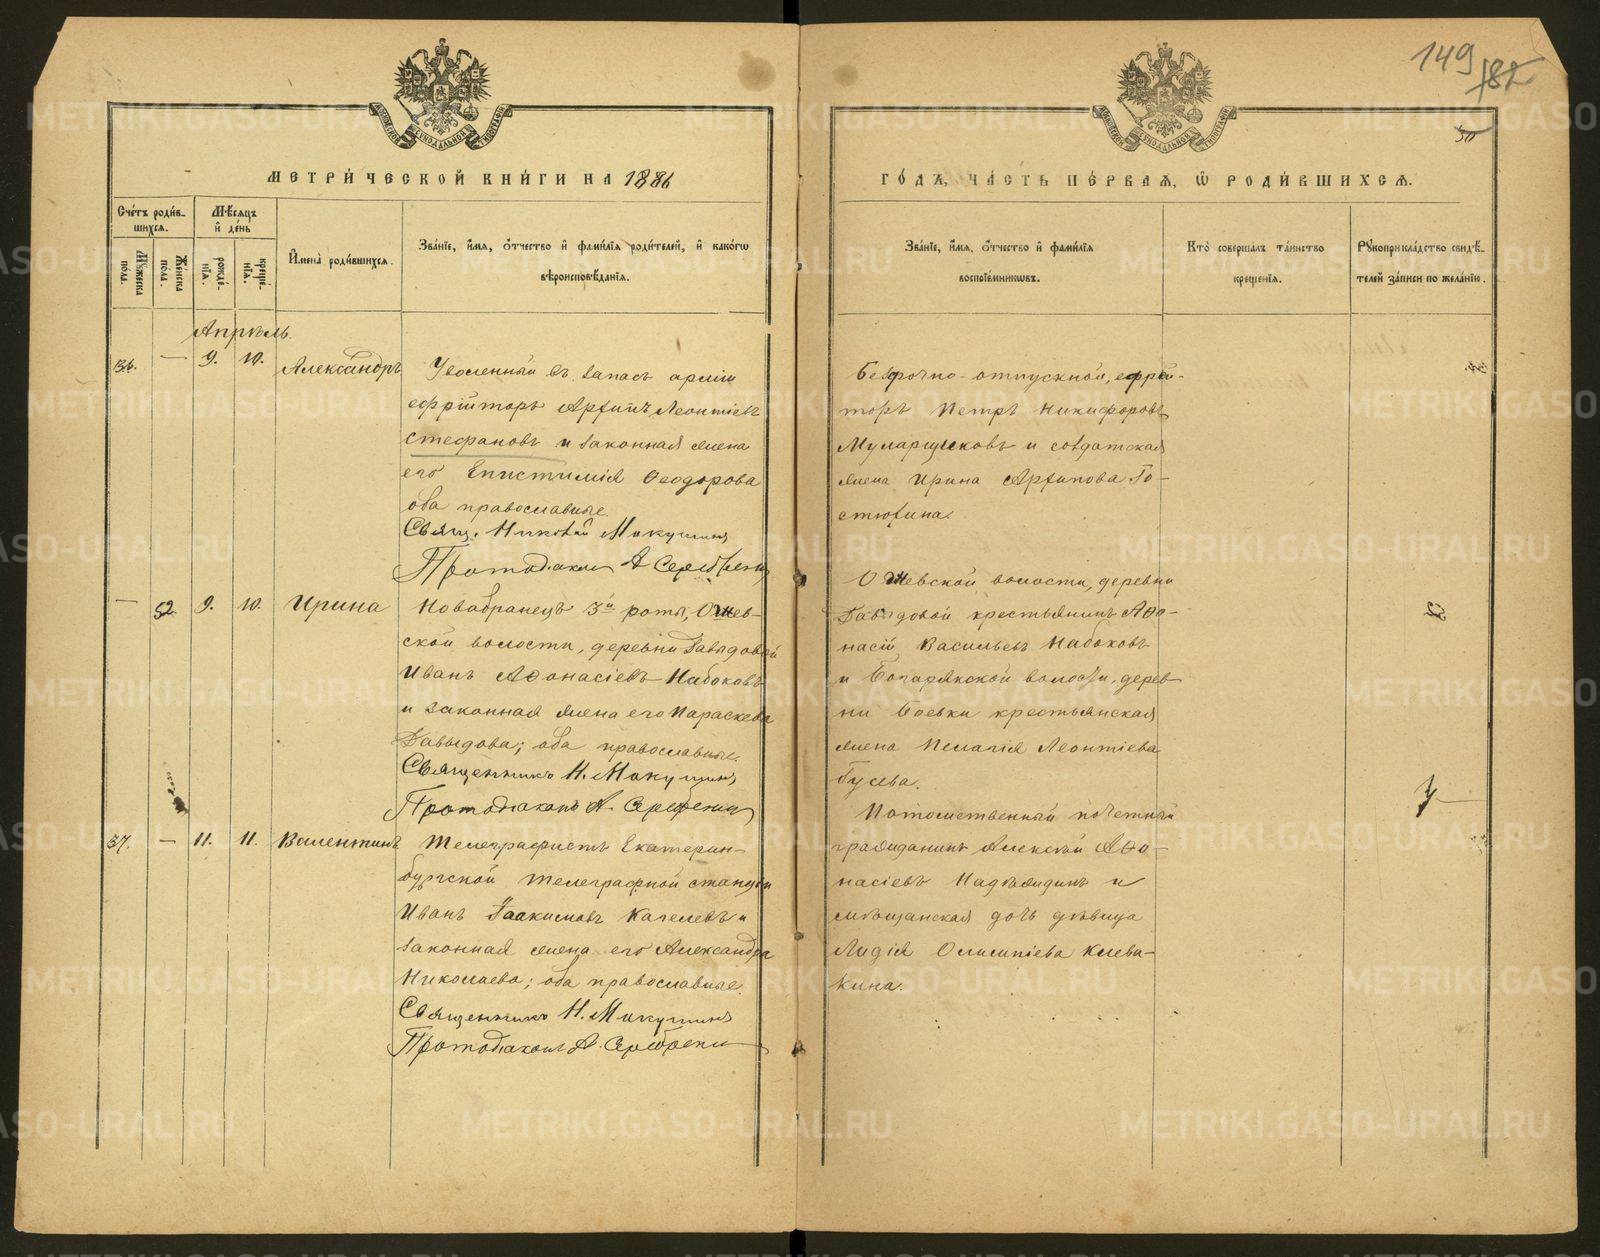 149
182
50
МЕТРИ́ЧЕСКОЙ КНИ́ГИ НА 1886
ГО́ДЪ, ЧА́СТЬ ПЕ́РВАЯ, Ѽ РОДИ́ВШИХСЯ.
Сче́тъ роди́в-
шихся.
Мꙋ́жеска по́ла.
Же́нска по́ла.
Мѣ́сяцъ
и҆ де́нь
рожде́-
нїя.
креще́-
нїя.
И҆мена̀ роди́вшихся.
Зва́нїе, и҆́мя, ѻ҆́тчество и҆ фамѝлїя роди́телей, и҆ како́гѡ
вѣроисповѣ́данїя.
Зва́нїе, и҆́мя, ѻ҆́тчество и҆ фамѝлїя
воспрїе́мникѡвъ.
Кто̀ соверша́лъ та́инство
креще́нїя.
Рꙋкоприкла́дство свидѣ́-
телей за́писи по жела́нїю.
Апрѣль
36. — 9. 10. Александръ
Уволенный въ запасъ арміи
ефрейторъ Архипъ Леонтіевъ
Стефановъ и законная жена
его Епистимія Ѳеодорова
оба православные.
Свящ. Николай Макушинъ
Протодіаконъ А
Безсрочно-отпускной, ефрей-
торъ Петръ Никифоровъ
и солдатская
жена Ирина Архипова Го-
стюхина.
— 52. 9. 10. Ирина
Новобранецъ 3й роты,
ской волости, деревни Давыдовой
Иванъ Аѳонасіевъ Набоковъ
и законная жена его Параскева
Давыдова; оба православные.
Священникъ Н. Макушинъ
Протодіаконъ А.
волости, деревни
Давыдовой крестьянинъ Аѳо-
насій Васильевъ Набоковъ
и волости, дерев-
ни Боевки крестьянская
жена Пелагія Леонтіева
Гусева.
37. — 11. 11. Валентинъ
Телеграфистъ Екатерин-
бургской телеграфной станціи
Иванъ Іоакимовъ
законная жена его Александра
Николаева; оба православные.
Священникъ Н. Макушинъ
Протодіаконъ А.
Потомственный почетный
гражданинъ Алексѣй Аѳо-
насіевъ и
мѣщанская дочь дѣвица
Лидія Олимпіева Клева-
кина.